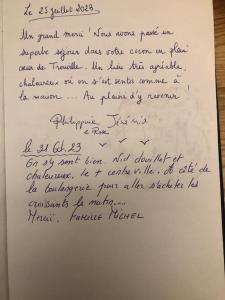 Le 25 juillet 2023.
Un grand merci ! Nous avons passé un
superbe séjour dans votre cocon en plein
cœur de Trouville. Un lieu très agréable,
chaleureux où on s'est sentis comme à
la maison ... Au plaisir d'y revenir !
Philippine Jérémie
& Rose
le 31 Oct. 23
On s'y sent bien. Nid douillet et
chaleureux. Le + centre ville. A côté de
la boulangerie pour aller s'acheter les
croissants le matin...
Merci. FAMILLE MICHEL